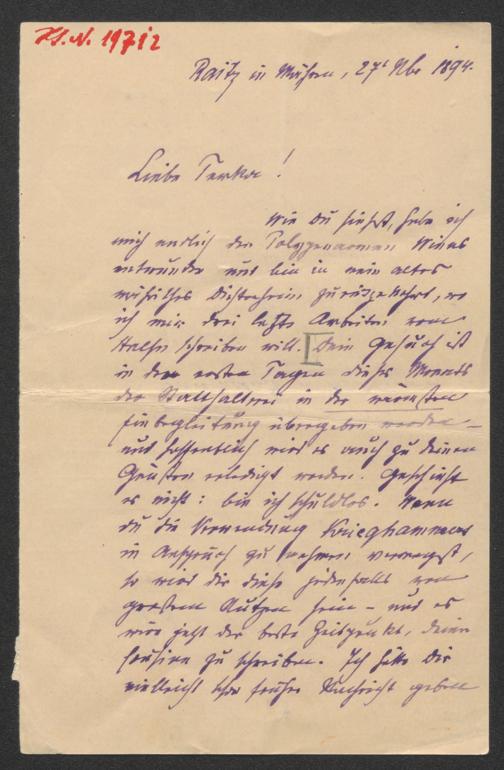 H.I.N. 19712
Raitz in Mähren, 27t Nbr 1894.
Liebe Terka!
Wie du siehst, habe ich
mich endlich den Polypenarmen Wiens
entwunden und bin in mein altes
mährisches Dichterheim zurückgekehrt, wo
ich mir drei letzte Arbeiten vom
Halse schreiben will. Dein Gesuch ist
in den ersten Tagen dieses Monats
der Statthalterei in der wärmsten
Einbegleitung übergeben worden –
und hoffentlich wird es auch zu deinen
Gunsten erledigt werden. Geschieht
es nicht: bin ich schuldlos. Wenn
du die Verwendung Krieghammers
in Anspruch zu nehmen vermagst,
so wird dir diese jedenfalls von
großem Nutzen sein – und es
wäre jetzt der beste Zeitpunkt, deiner
Cousine zu schreiben. Ich hätte dir
vielleicht schon früher Nachricht geben